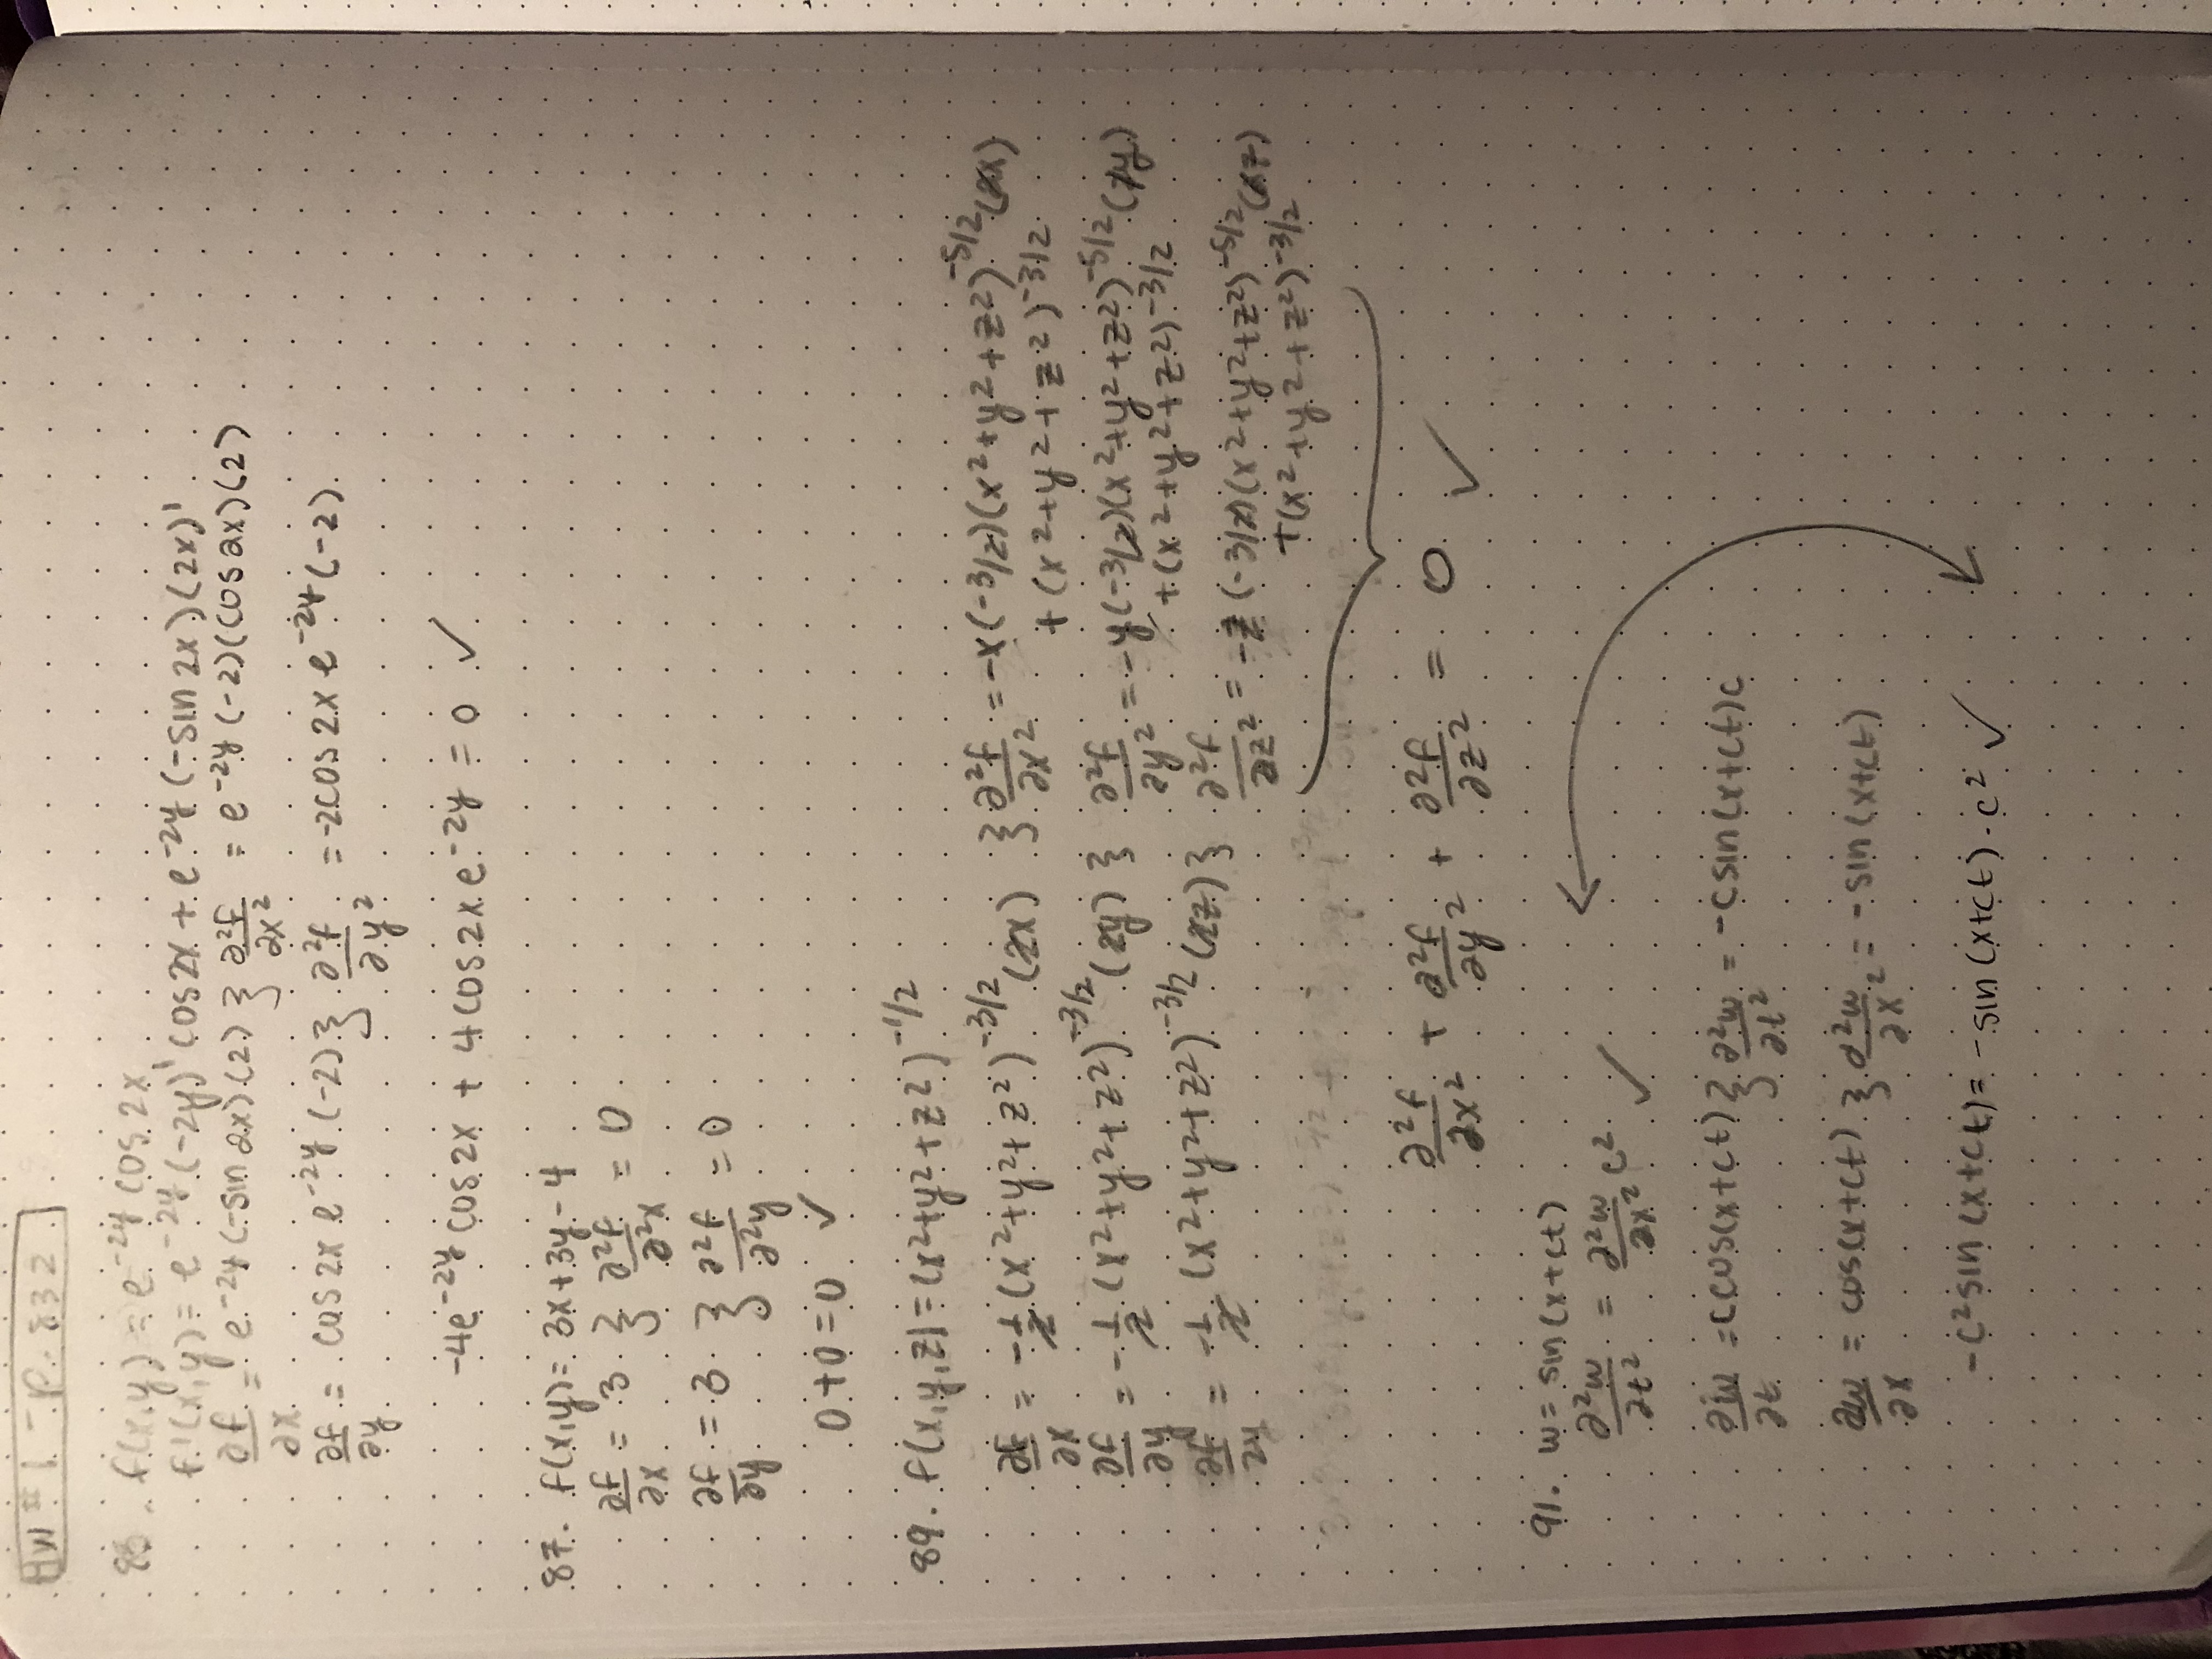 HW #1 - P. 832
85. f(x,y) = e^-2y cos 2x
f'(x,y) = e^-2y (-2y)' cos2x + e^-2y (-sin 2x)(2x)'
∂f/∂x = e^-2y (-sin 2x)(2) } ∂²f/∂x² = e^-2y (-2)(cos2x)(2)
∂f/∂y = cos2x e^-2y (-2) } ∂²f/∂y² = -2cos2x e^-2y (-2)
-4e^-2y cos2x + 4cos2x e^-2y = 0 ✓
87. f(x,y) = 3x+3y-4
∂f/∂x = 3 } ∂²f/∂²x = 0
∂f/∂y = 3 } ∂²f/∂²y = 0
0+0=0 ✓
89. f(x,y,z) = (x²+y²+z²)^-1/2
∂f/∂x = -1/2 (x²+y²+z²)^-3/2 (2x) } ∂²f/∂x² = -x(-3/2)(x²+y²+z²)^-5/2 (2x)
+ (x²+y²+z²)^-3/2
∂f/∂y = -1/2 (x²+y²+z²)^-3/2 (2y) } ∂²f/∂y² = -y(-3/2)(x²+y²+z²)^-5/2 (2y)
+(x²+y²+z²)^-3/2
∂f/∂y = -1/2 (x²+y²+z²)^-3/2 (2z) } ∂²f/∂z² = -z(-3/2)(x²+y²+z²)^-5/2 (2z)
+(x²+y²+z²)^-3/2
∂²f/∂x² + ∂²f/∂y² + ∂²f/∂z² = 0 ✓
91. w = sin(x+ct)
∂²w/∂t² = ∂²w/∂x² c² ✓
∂w/∂t = ccos(x+ct) } ∂²w/∂t² = -csin(x+ct)c
∂w/∂x = cos(x+ct) } ∂²w/∂x² = -sin(x+ct)
-c²sin(x+ct) = -sin(x+ct)·c² ✓